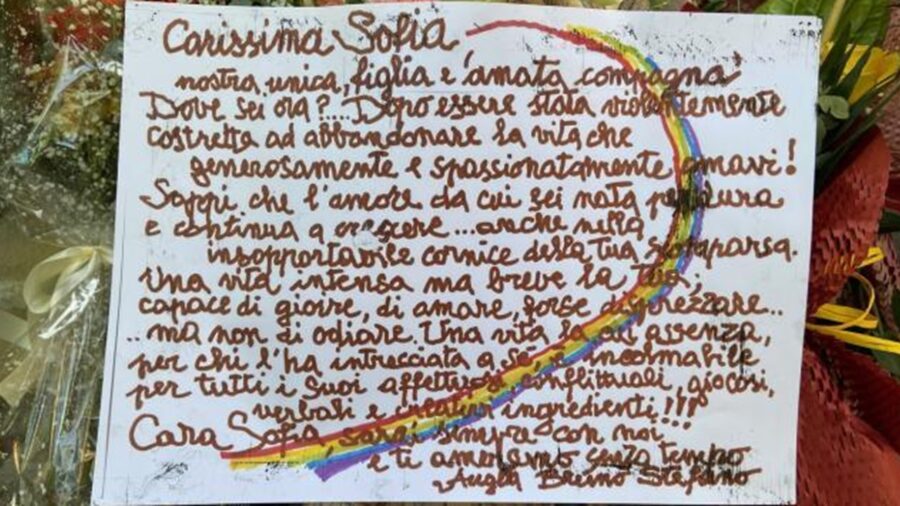 Carissima Sofia,
nostra unica, figlia e "amata compagna"
Dove sei ora?.... Dopo essere stata violentemente
costretta ad abbandonare la vita che
generosamente e spassionatamente amavi!
Sappi che l'amore da cui sei nata perdura
e continua a crescere ... anche nella
insopportabile cornice della tua scomparsa.
Una vita intensa ma breve la tua,
capace di gioire, di amare, forse disprezzare...
.. ma non di odiare. Una vita la cui assenza,
per chi l'ha intrecciata a sé, è incolmabile
per tutti i suoi affettuosi conflittuali, giocosi,
verbali e creativi ingredienti!!!
Cara Sofia, sarai sempre con noi
e ti ameremo senza tempo
Bruno Stefano